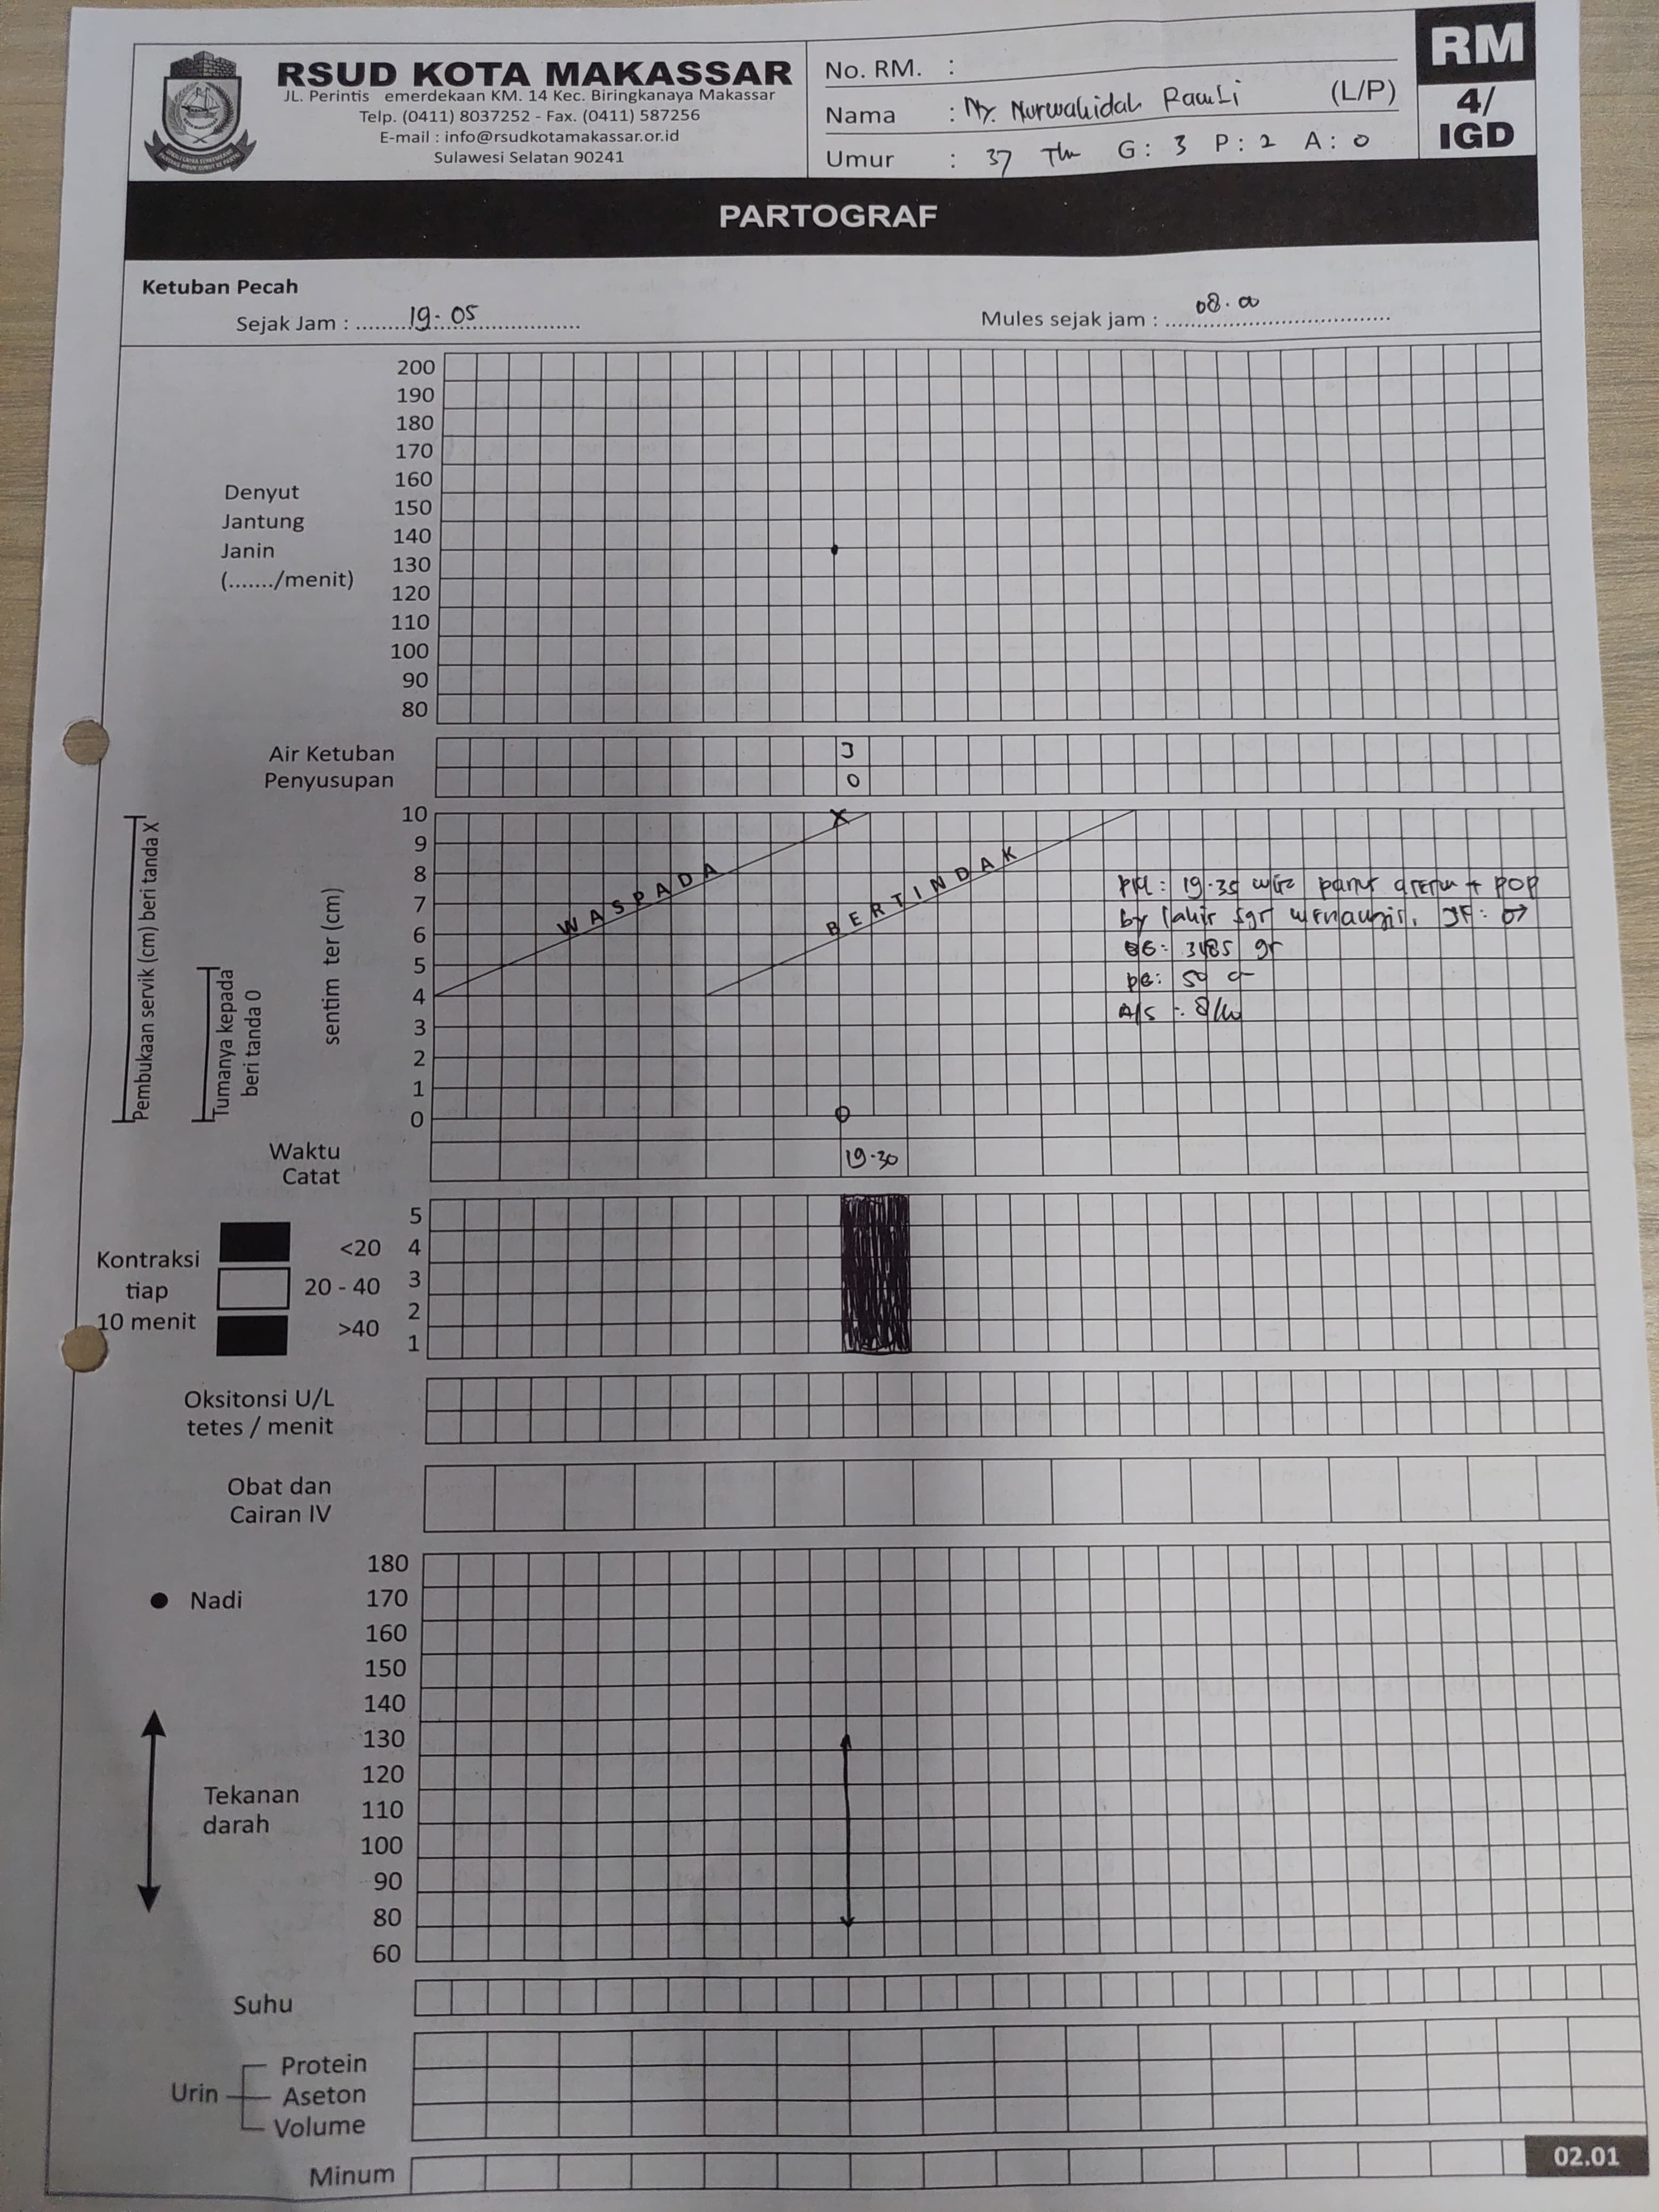 RSUD KOTA MAKASSAR
JL. Perintis emerdekaan KM. 14 Kec. Biringkanaya Makassar
Telp. (0411) 8037252 - Fax. (0411) 587256
E-mail : info@rsudkotamakassar.or.id
Sulawesi Selatan 90241
No. RM. :
Nama : Ny. Nurwahidah Ramli (L/P)
Umur : 37 Thn G: 3 P: 2 A: 0
RM
4/
IGD
PARTOGRAF
Ketuban Pecah
Sejak Jam : 19.05
Mules sejak jam : 08.00
Denyut
Jantung
Janin
(......./menit)
200
190
180
170
160
150
140
130
120
110
100
90
80
Air Ketuban J
Penyusupan 0
Pembukaan servik (cm) beri tanda X
Tumanya kepada
beri tanda 0
sentim ter (cm)
10 X
9
8
7
6
5
4
3
2
1
0 O
WASPADA
BERTINDAK
19.35
by lahir
3185 gr
50
A/S : 8/10
Waktu
Catat
19.30
Kontraksi
tiap
10 menit
<20
20 - 40
>40
5
4
3
2
1
Oksitonsi U/L
tetes / menit
Obat dan
Cairan IV
Nadi
Tekanan
darah
180
170
160
150
140
130
120
110
100
90
80
60
Suhu
Urin
Protein
Aseton
Volume
Minum
02.01